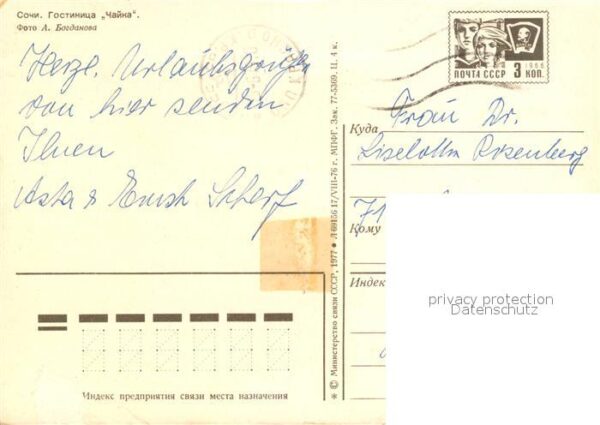 Сочи. Гостиница „Чайка".
Фото А. Богданова
Herzl. Urlaubsgrüße
von hier senden
Ihnen
Asta & Ernst Scharf
ПОЧТА СССР 3 КОП.
1966
Куда
Frau Dr.
Liselotte Rosenberg
71
Кому
Индекс
privacy protection
Datenschutz
Индекс предприятия связи места назначения
* © Министерство связи СССР, 1977 ● Л 69156 17/VIII-76 г. МПФГ. Зак. 77-5309. Ц. 4 к.